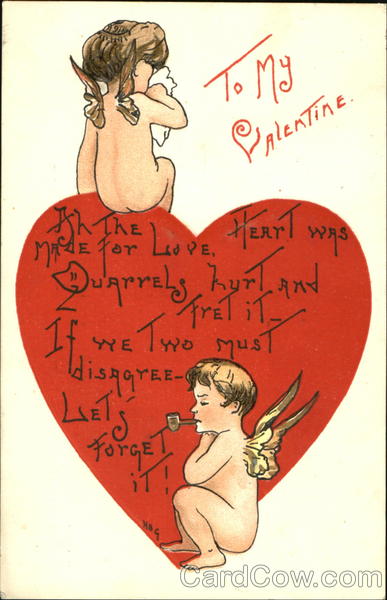 To My
Valentine.
Ah The Heart was
made for Love,
Quarrels hurt and
fret it—
If we two must
disagree—
Let's
forget
it!
HBG
CardCow.com